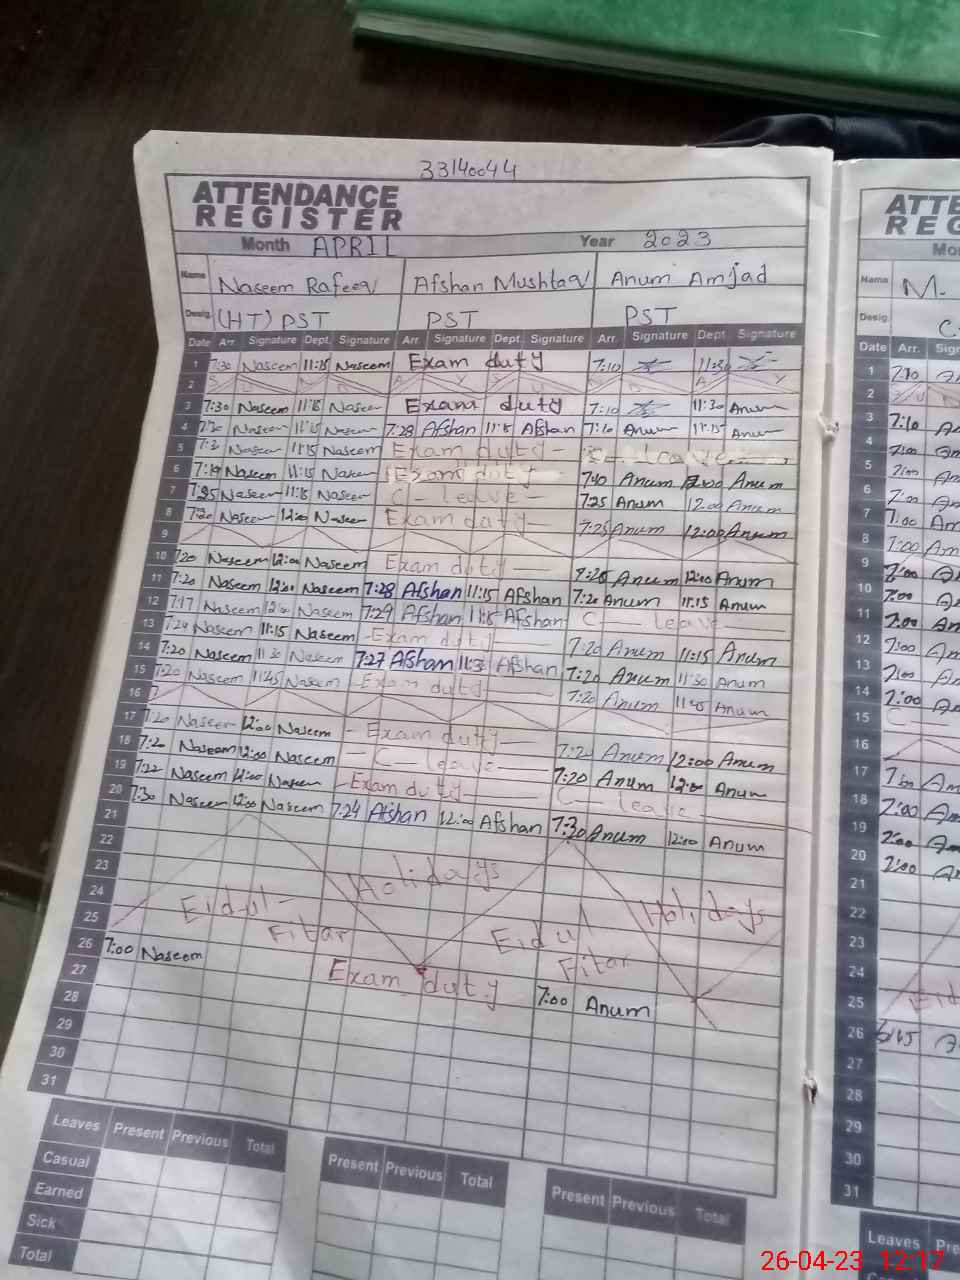 33140044
ATTENDANCE
REGISTER
Month APRIL Year 2023
Name Naseem Rafeeq Afshan Mushtaq Anum Amjad
Desig. (HT) PST PST PST
Date Arr. Signature Dept. Signature Arr Signature Dept. Signature Arr. Signature Dept Signature
1 7:30 Naseem 11:15 Naseem Exam duty 7:10 11:30
2
3 7:30 Naseem 11:15 Naseem Exam duty 7:10 11:30 Anum
4 7:20 Naseem 11:15 Naseem 7:28 Afshan 11:15 Afshan 7:10 Anum 11:15 Anum
5 Naseem 11:15 Naseem Exam duty
6 7:19 Naseem 11:15 Naseem Exam duty Anum 12:00 Anum
7 7:25 Naseem 11:15 Naseem C - leave - 7:25 Anum 12:00 Anum
8 7:20 Naseem 12:00 Naseem Exam duty 7:25 Anum 12:00 Anum
9
10 7:20 Naseem 12:00 Naseem Exam duty Anum 12:00 Anum
11 7:20 Naseem 12:00 Naseem 7:28 Afshan 11:15 Afshan 7:20 Anum 11:15 Anum
12 7:17 Naseem 12:00 Naseem 7:29 Afshan 11:15 Afshan C leave
13 7:24 Naseem 11:15 Naseem - Exam duty 7:20 Anum 11:15 Anum
14 7:20 Naseem 11:30 Naseem 7:27 Afshan 11:3 Afshan 7:20 Anum 11:30 Anum
15 7:20 Naseem 11:45 Naseem - Exam duty 7:20 Anum 11:45 Anum
16
17 7:20 Naseem 12:00 Naseem - Exam duty 7:20 Anum 12:00 Anum
18 7:20 Naseem 12:00 Naseem - C - leave 7:20 Anum 12:00 Anum
19 7:22 Naseem 12:00 Naseem - Exam duty C - leave
20 7:30 Naseem 12:00 Naseem 7:24 Afshan 12:00 Afshan 7:30 Anum 12:00 Anum
21
22
23 Holidays
24 Eid-ul- Holidays
25 Fitar Eid ul Fitar
26 7:00 Naseem Exam duty 7:00 Anum
27
28
29
30
31
Leaves Present Previous Total Present Previous Total Present Previous Total
Casual
Earned
Sick
Total
ATTE
REG
Name M.
Desig.
Date Arr.
1 7:10
2
3 7:10
4 7:00
5 7:00
6 7:00
7 7:00
8 7:00
9 7:00
10 7:00
11 7:00
12 7:00
13 7:00
14 7:00
15
16
17 7:00
18 7:00
19 7:00
20 7:00
21
22
23
24
25 Eid
26
27
28
29
30
31
Leaves Pre
26-04-23 12:17